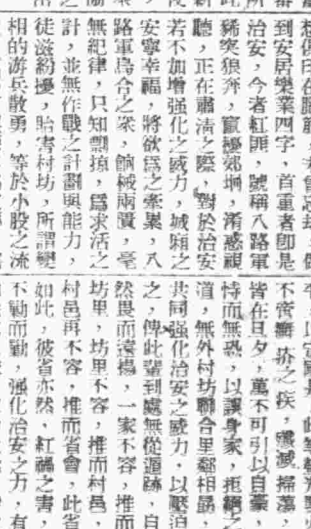 到安居樂業四字,首重者卽是
治安,今者紅匪,號稱八路軍
豨突狼奔,竄擾郊坰,淆惑視
聽,正在肅清之際,對於治安
若不加增强化之威力,城之
安寧幸福,將欲爲之牽累,八
路軍烏合之衆,餉械兩匱,毫
無紀律,只知剽掠,爲求活之
計,並無作戰之計劃與能力,
徒滋紛擾,貽害村坊,所謂變
相的游兵散勇,等於小股之流
不啻癬疥之疾,殲滅掃蕩
皆在旦夕,萬不可引以自
恃而無恐,以護身家,拒絕之
道,無外村坊聯合里鄰相議
共同强化治安之威力,以壓迫
之,俾此輩到處無從遁跡,自
然畏而遠楊,一家不容,推而
坊里,坊里不容,推而村邑,
村邑再不容,推而省會,此省
如此,彼省亦然,紅禍之害,
不勦而勦,强化治安之力,有